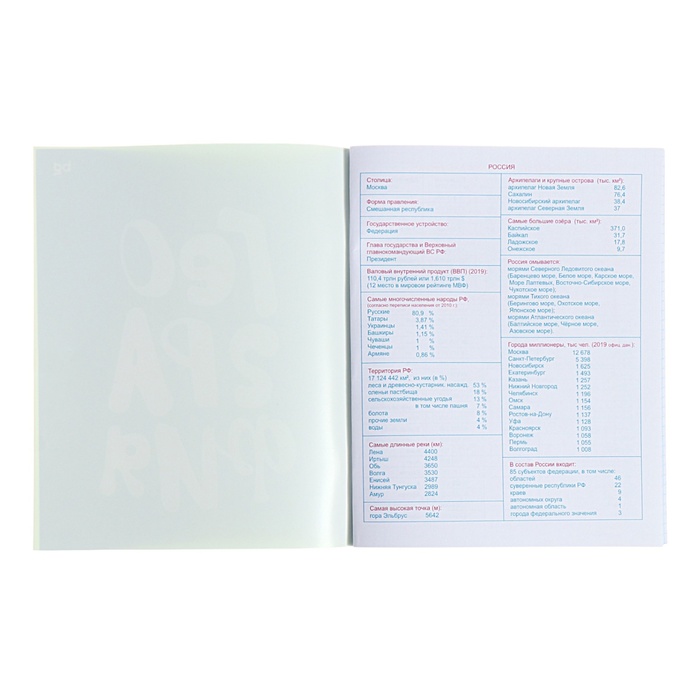 РОССИЯ
Столица:
Москва
Форма правления:
Смешанная республика
Государственное устройство:
Федерация
Глава государства и Верховный
главнокомандующий ВС РФ:
Президент
Валовый внутренний продукт (ВВП) (2019):
110,4 трлн рублей или 1,610 трлн $
(12 место в мировом рейтинге МВФ)
Самые многочисленные народы РФ:
(согласно переписи населения от 2010 г.)
Русские 80,9 %
Татары 3,87 %
Украинцы 1,41 %
Башкиры 1,15 %
Чуваши 1 %
Чеченцы 1 %
Армяне 0,86 %
Территория РФ:
17 124 442 км², из них (в %)
леса и древесно-кустарник. насажд. 53 %
оленьи пастбища 18 %
сельскохозяйственные угодья 13 %
в том числе пашня 7 %
болота 8 %
прочие земли 4 %
воды 4 %
Самые длинные реки (км):
Лена 4400
Иртыш 4248
Обь 3650
Волга 3530
Енисей 3487
Нижняя Тунгуска 2989
Амур 2824
Самая высокая точка (м):
гора Эльбрус 5642
Архипелаги и крупные острова (тыс. км²):
архипелаг Новая Земля 82,6
Сахалин 76,4
Новосибирский архипелаг 38,4
архипелаг Северная Земля 37
Самые большие озёра (тыс. км²):
Каспийское 371,0
Байкал 31,7
Ладожское 17,8
Онежское 9,7
Россия омывается:
морями Северного Ледовитого океана
(Баренцево море, Белое море, Карское море,
Море Лаптевых, Восточно-Сибирское море,
Чукотское море);
морями Тихого океана
(Берингово море, Охотское море,
Японское море);
морями Атлантического океана
(Балтийское море, Чёрное море,
Азовское море).
Города миллионеры, тыс чел. (2019 офиц. дан.):
Москва 12 678
Санкт-Петербург 5 398
Новосибирск 1 625
Екатеринбург 1 493
Казань 1 257
Нижний Новгород 1 252
Челябинск 1 196
Омск 1 154
Самара 1 156
Ростов-на-Дону 1 137
Уфа 1 128
Красноярск 1 093
Воронеж 1 058
Пермь 1 055
Волгоград 1 008
В состав России входит:
85 субъектов федерации, в том числе:
областей 46
суверенные республики РФ 22
краев 9
автономных округа 4
автономная область 1
города федерального значения 3